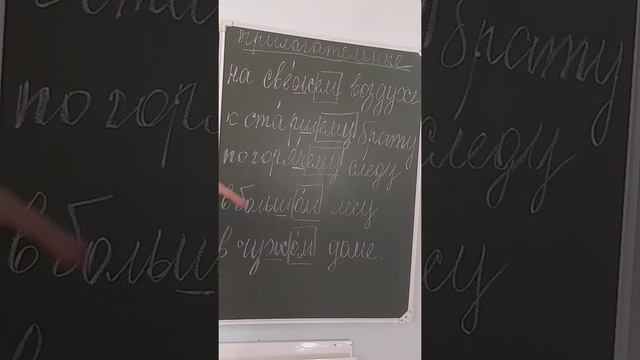 прилагательные
на свежем воздухе
к старшему брату
по горячему следу
в большом лесу
в чужом доме.